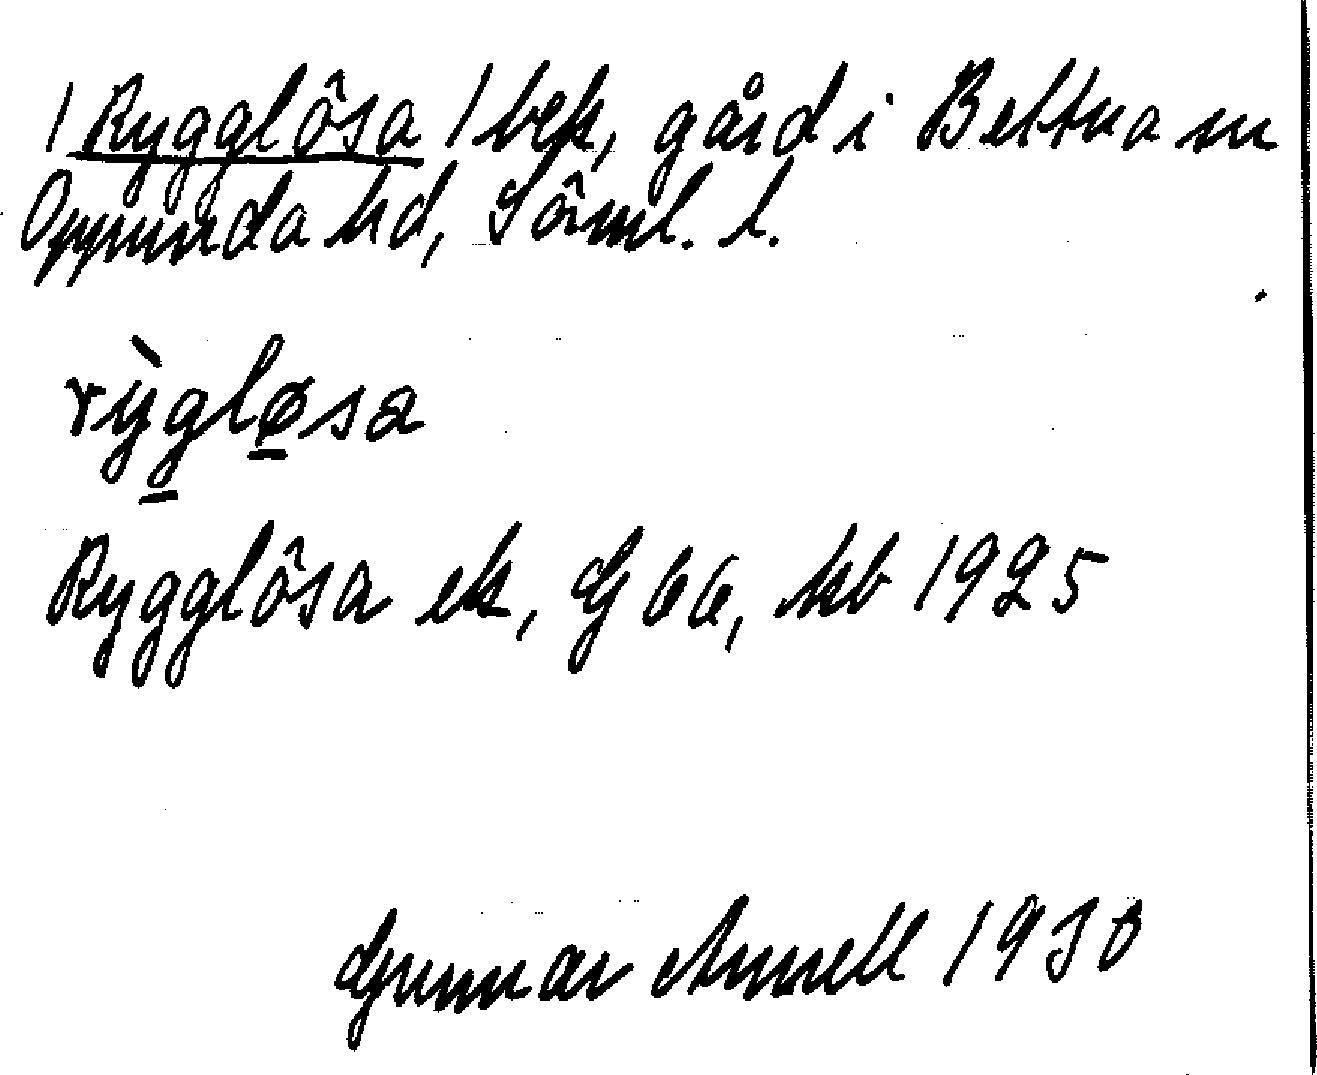 / Rygglösa / bek, gård i Bettna sn
Oppunda hd, Söml. l.
rỳgløsa
Rygglösa ek, G 66, kb 1925
Gunnar Annell 1930